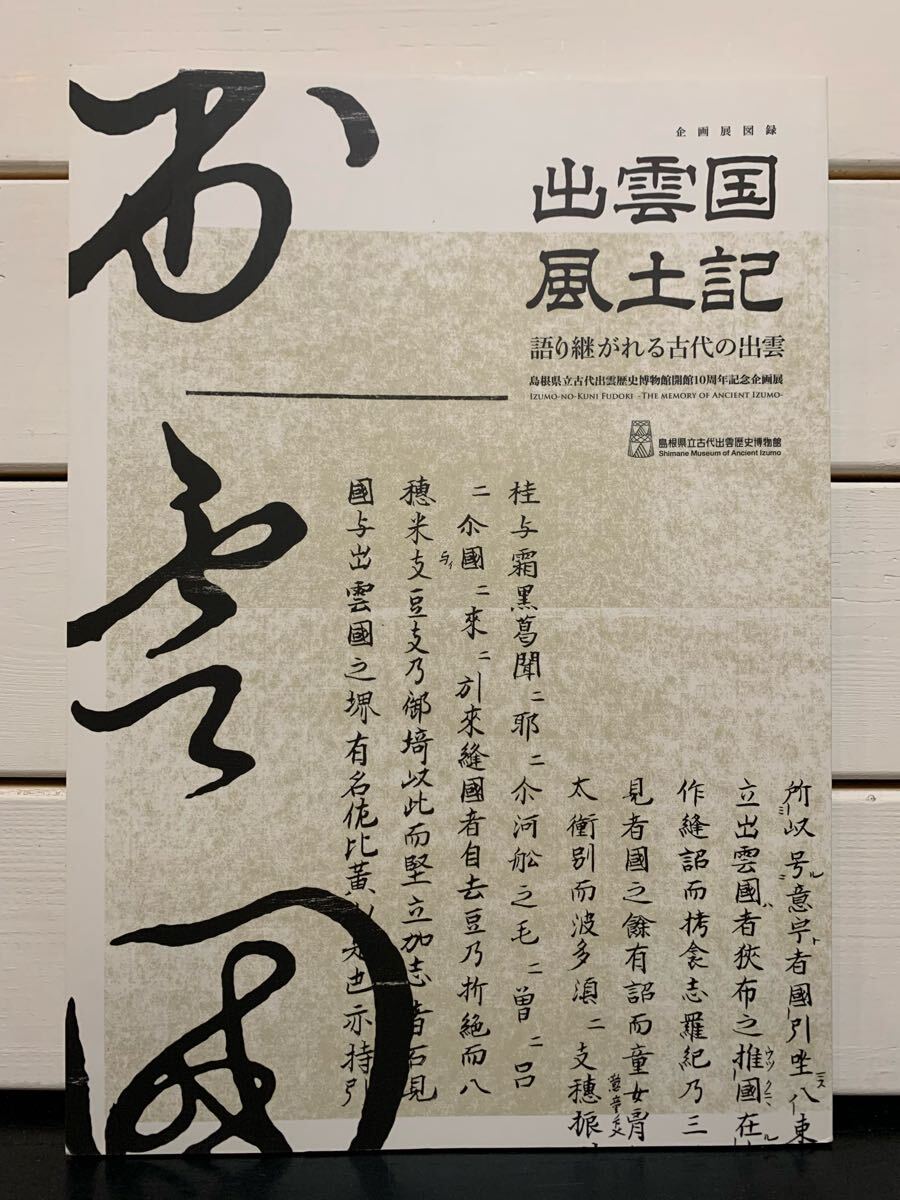 企画展図録
出雲国
風土記
語り継がれる古代の出雲
島根県立古代出雲歴史博物館開館10周年記念企画展
IZUMO-NO-KUNI FUDOKI -THE MEMORY OF ANCIENT IZUMO-
島根県立古代出雲歴史博物館
Shimane Museum of Ancient Izumo
出雲國
所以号意宇者國引坐八束
立出雲國者狭布之推國在
作縫詔而栲衾志羅紀乃三
見者國之餘有詔而童女胷
太衝別而波多滇二支穂振
桂与霜黒葛聞二耶二尒河舩之毛二曽二呂
二尒國二來二引來縫國者自去豆乃折絶而八
穂米支豆支乃御埼以此而堅立加志者石見
國与出雲國之堺有名佐比 也亦持引